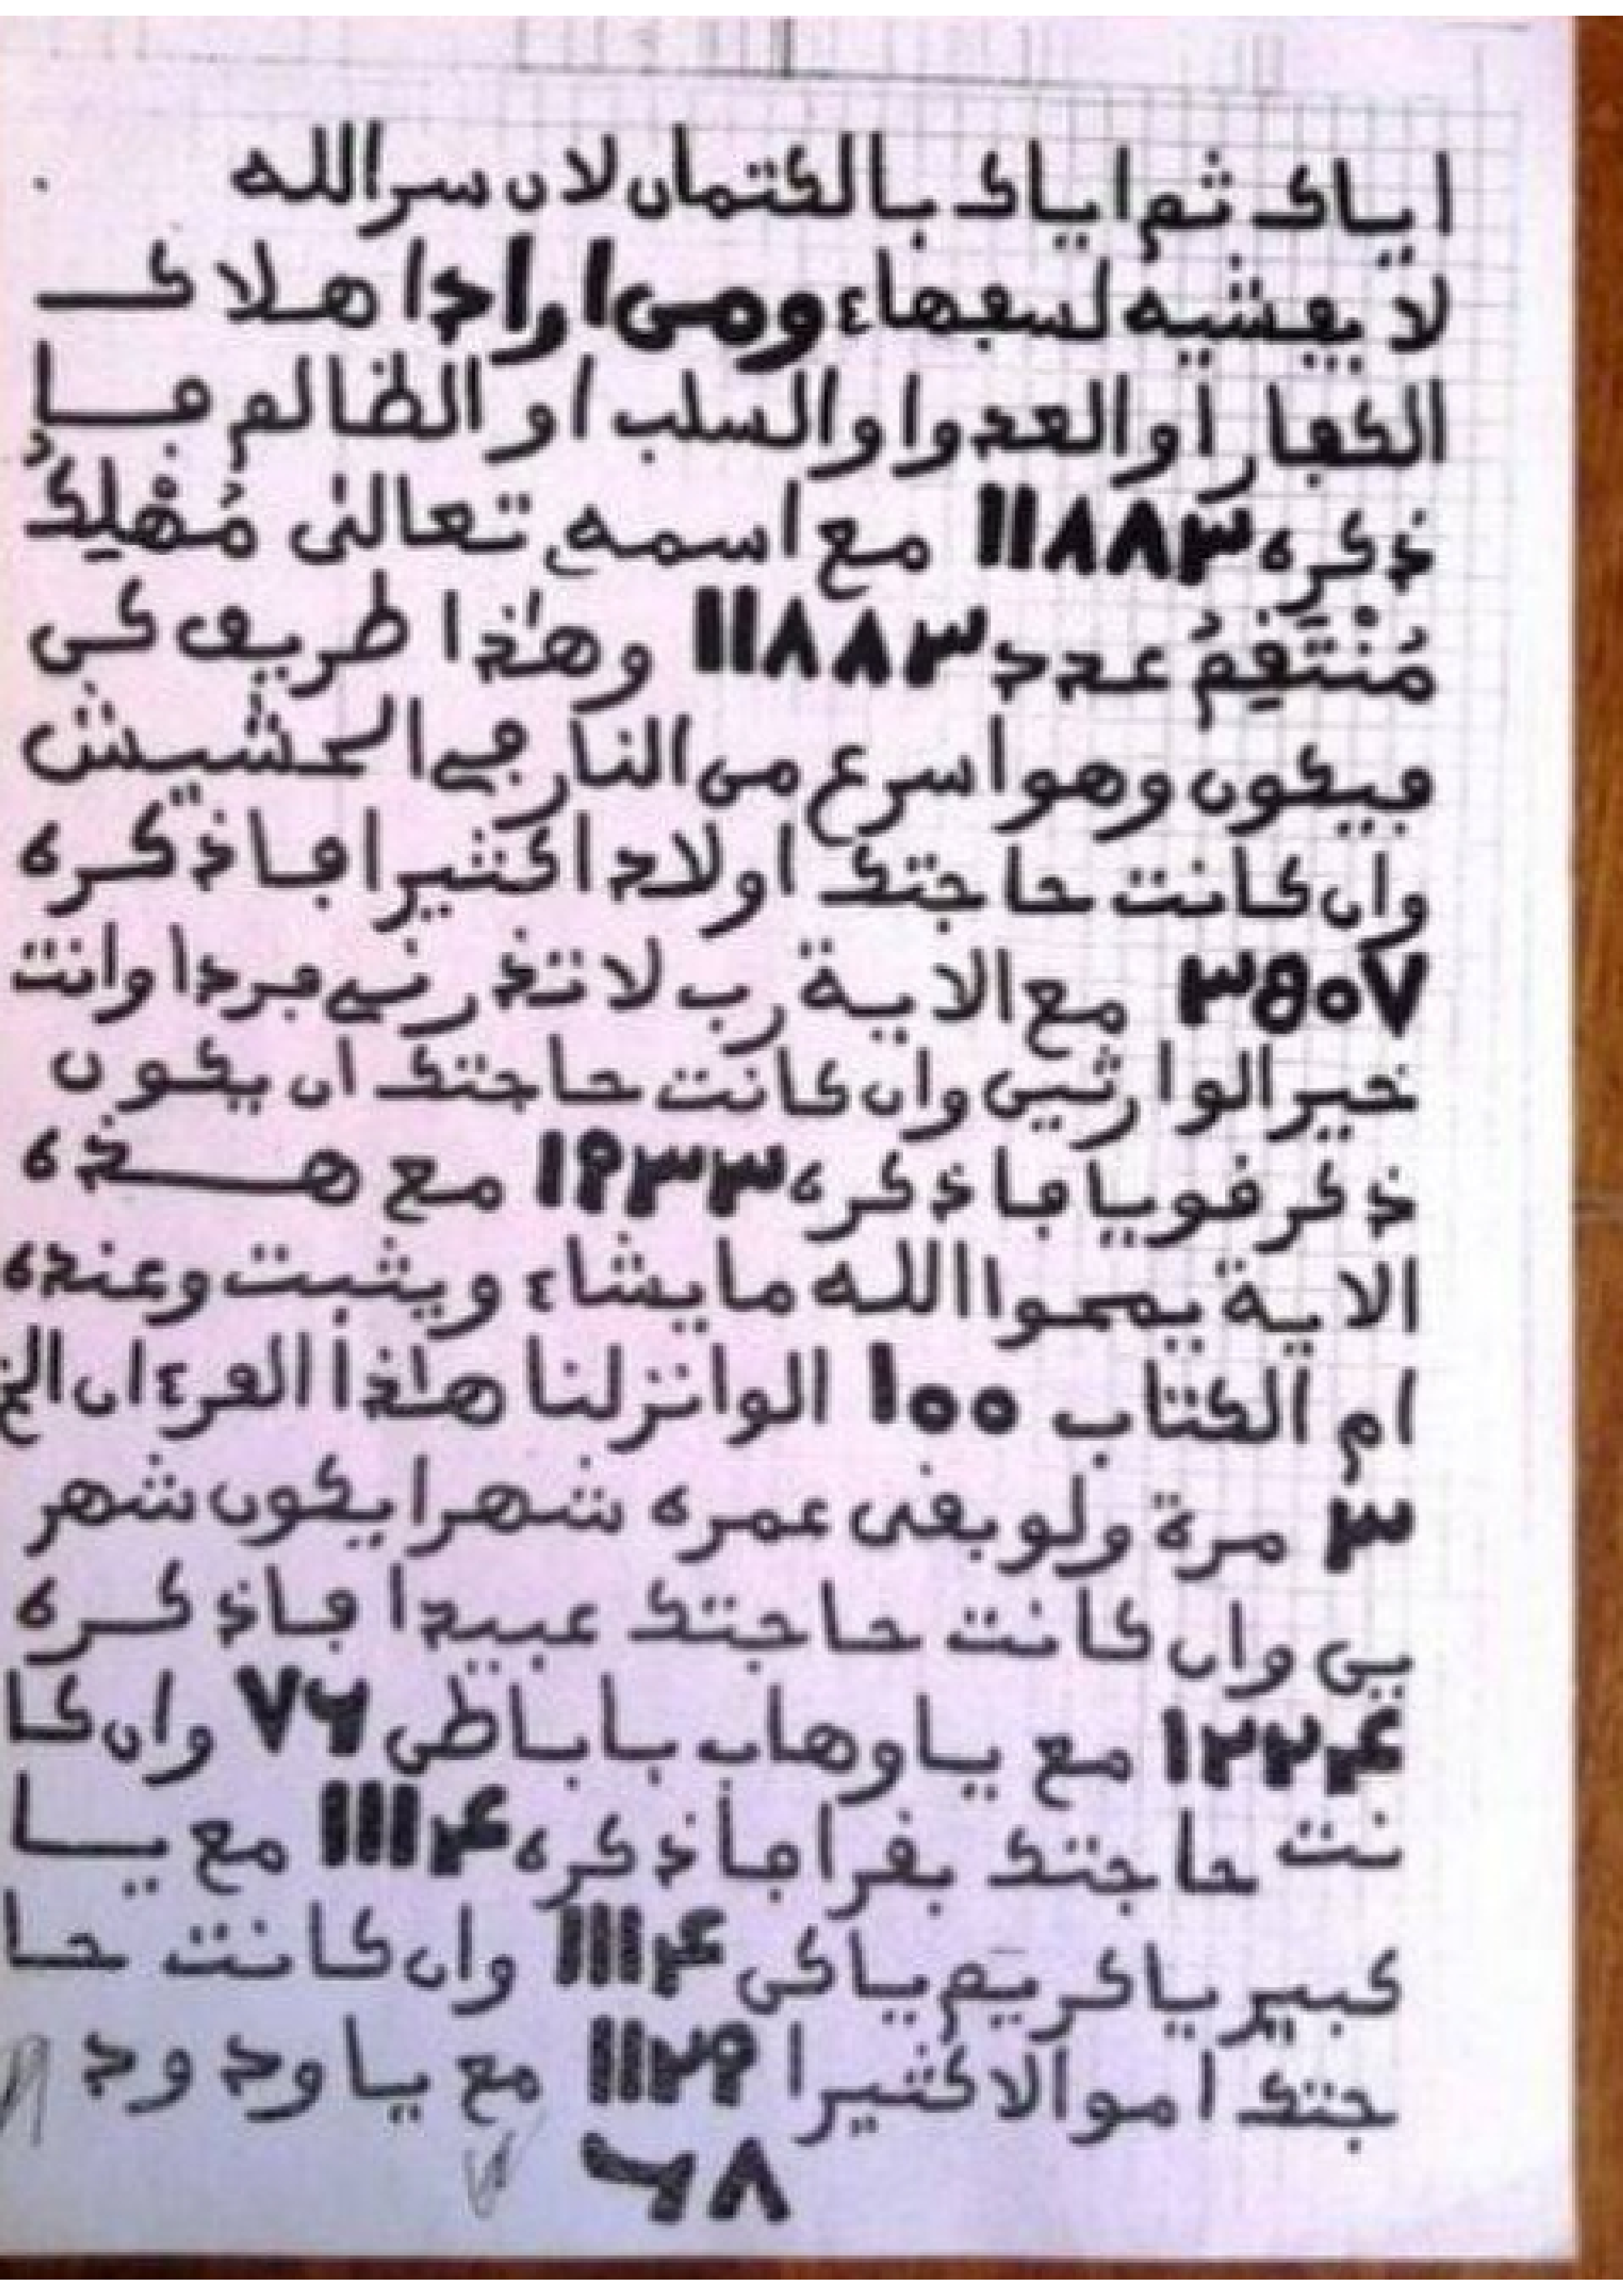 اياك ثم اياك بالكتمان لان سر الله
لا يفشيه لسفهاء ومن اراد اهلاك
الكفار او العدوا والسلب او الظالم فا
ذكره ١١٨٨٣ مع اسمه تعالىٰ مُهْلِكُ
مُنْتَقِمُ عدد ١١٨٨٣ وهٰذا طريق كن
فيكون وهو اسرع من النار في الحشيش
وان كانت حاجتك اولادا كثيرا فاذكره
٣٥٠٧ مع الاية رب لا تذرني فردا وانت
خير الوارثين وان كانت حاجتك ان يكون
ذكر قويا فاذكره ١٩٣٣ مع هذه
الاية يمحوا الله ما يشاء ويثبت وعنده
ام الكتاب ١٠٠ الوانزلنا هٰذا القرءان الخ
٣ مرة ولو بقى عمره شهرا يكون شهر
ين وان كانت حاجتك عبيدا فاذكره
١٢٢۴ مع يا وهاب باباطن ٧۶ وان كا
نت حاجتك بقرا فاذكره ١١١۴ مع يا
كبير يا كريم ياكى ١١١۴ وان كانت حا
جتك اموالا كثيرا ١١٢٩ مع يا ودود
۶٨